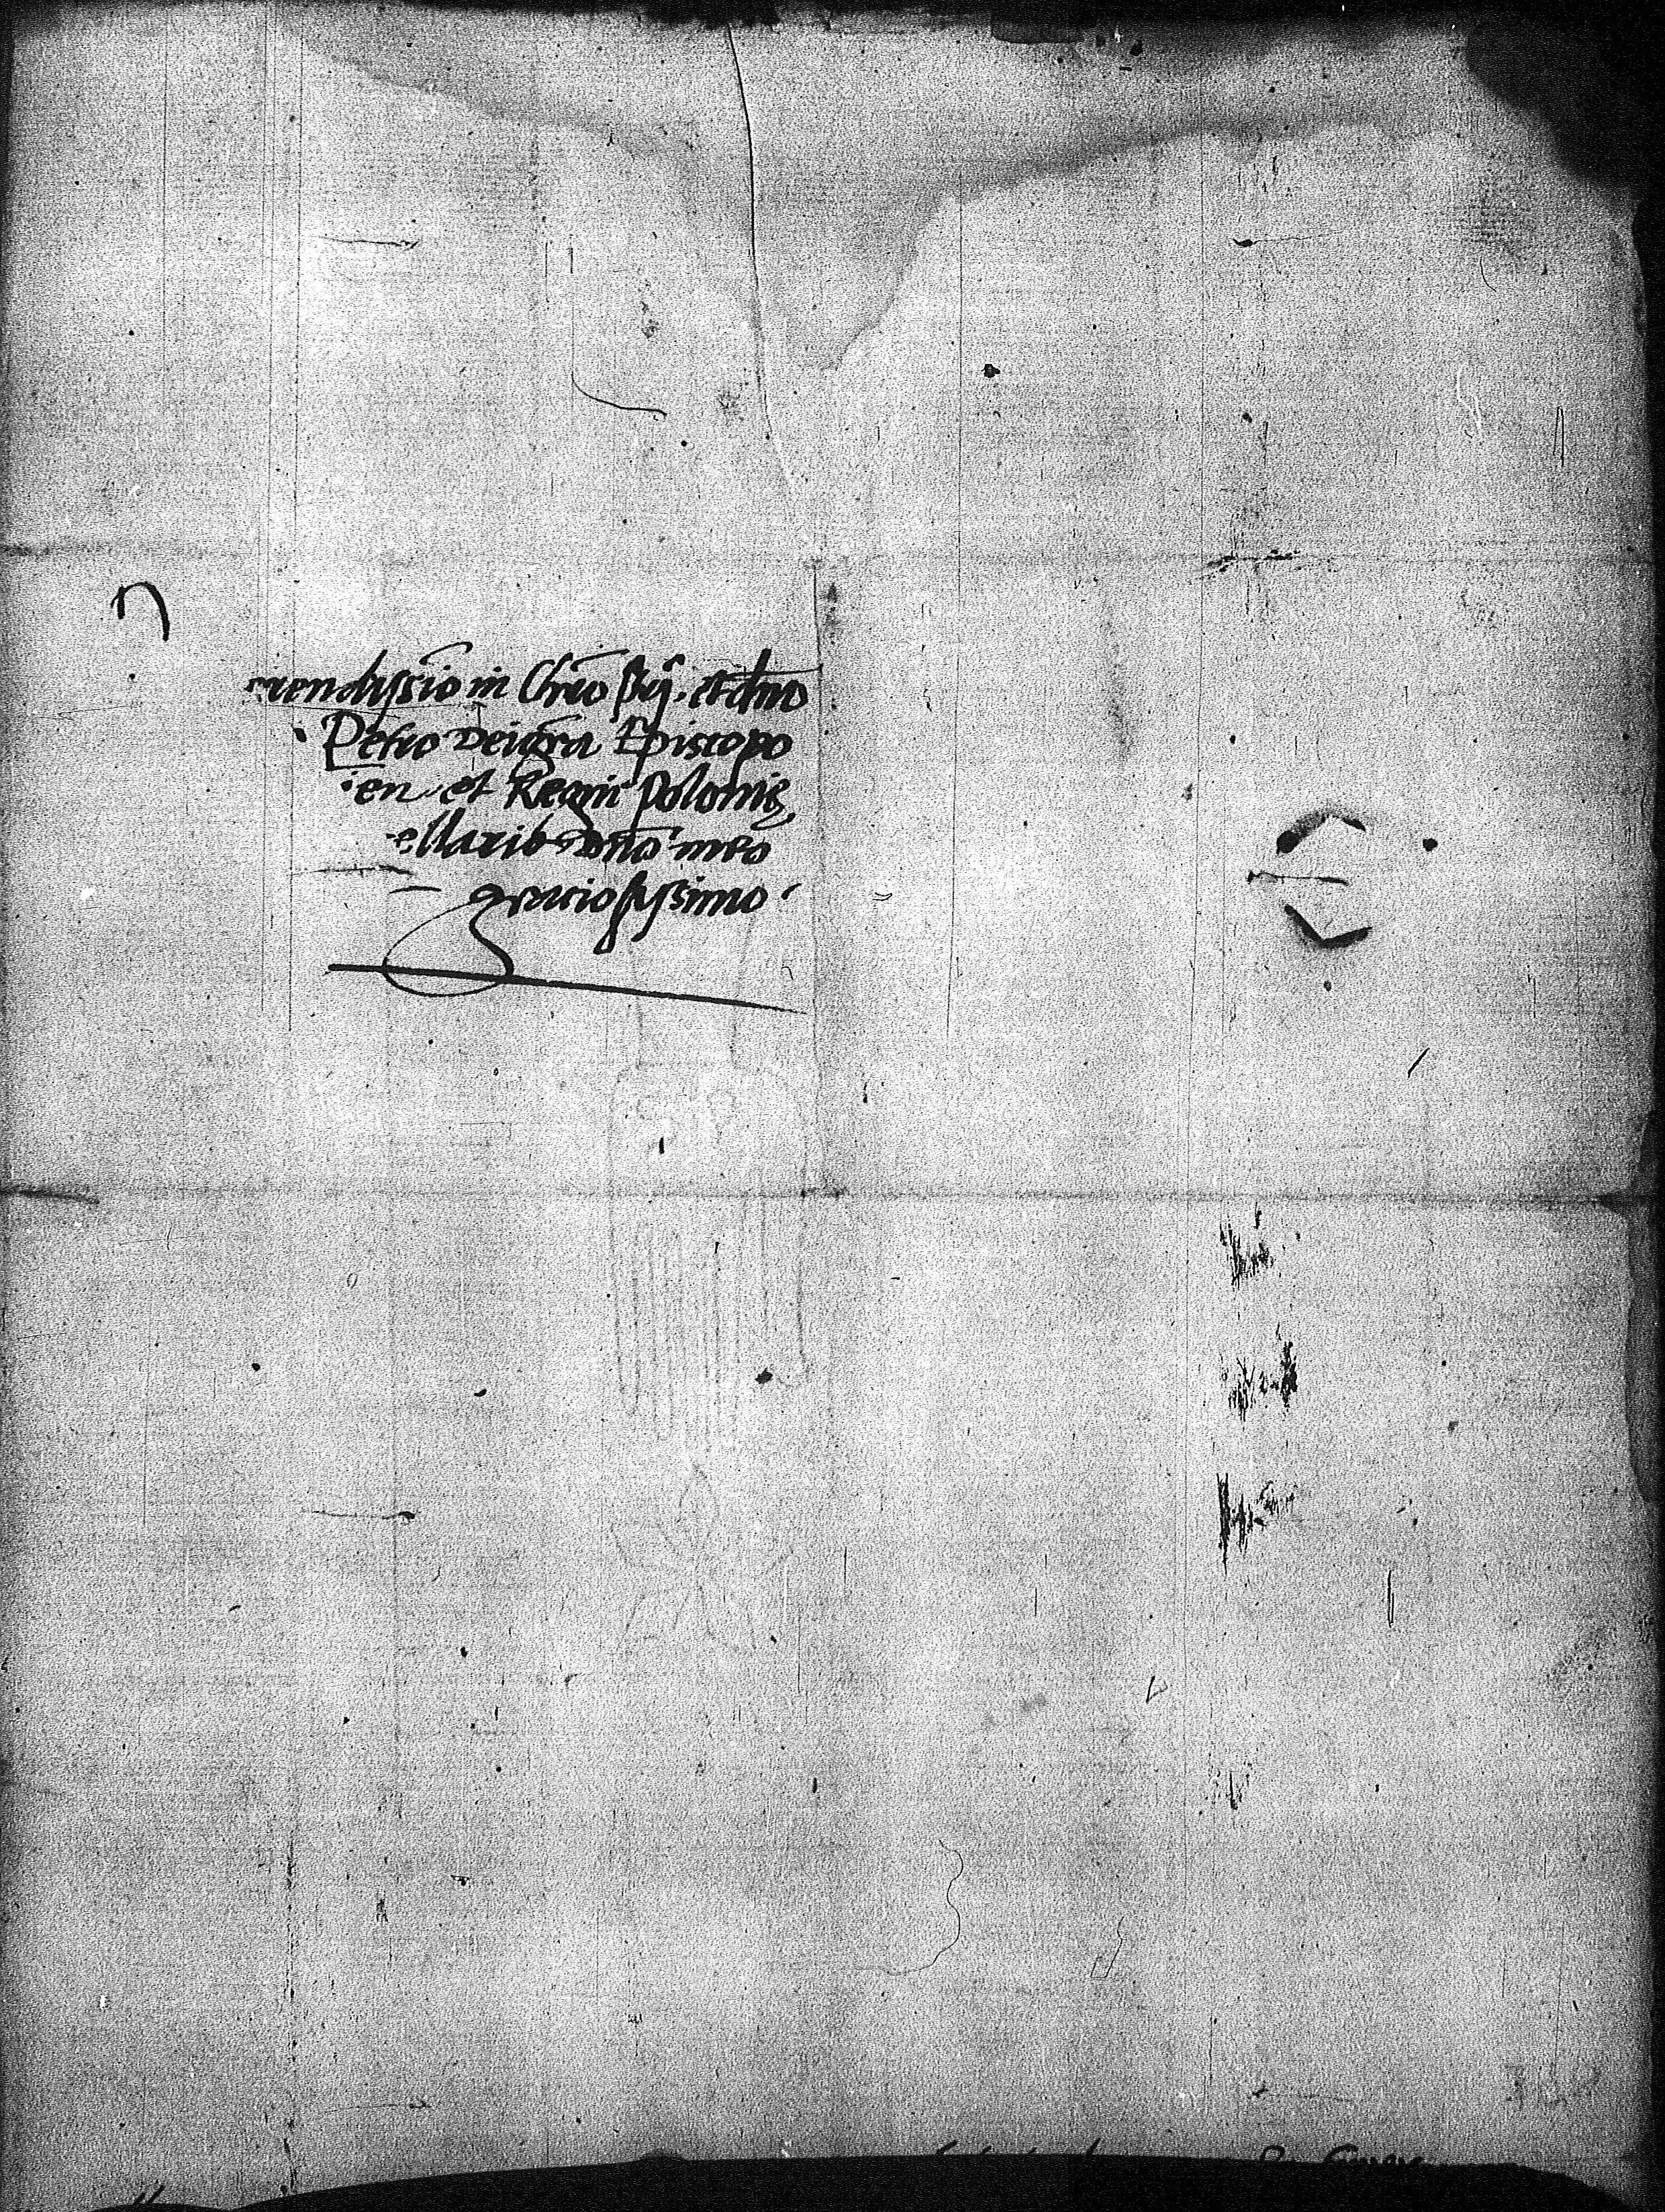 rendissio in Chro pri. et dno
Petro Dei gra Episcopo
ien et Regni polonie
ellario dno meo
graciosissimo